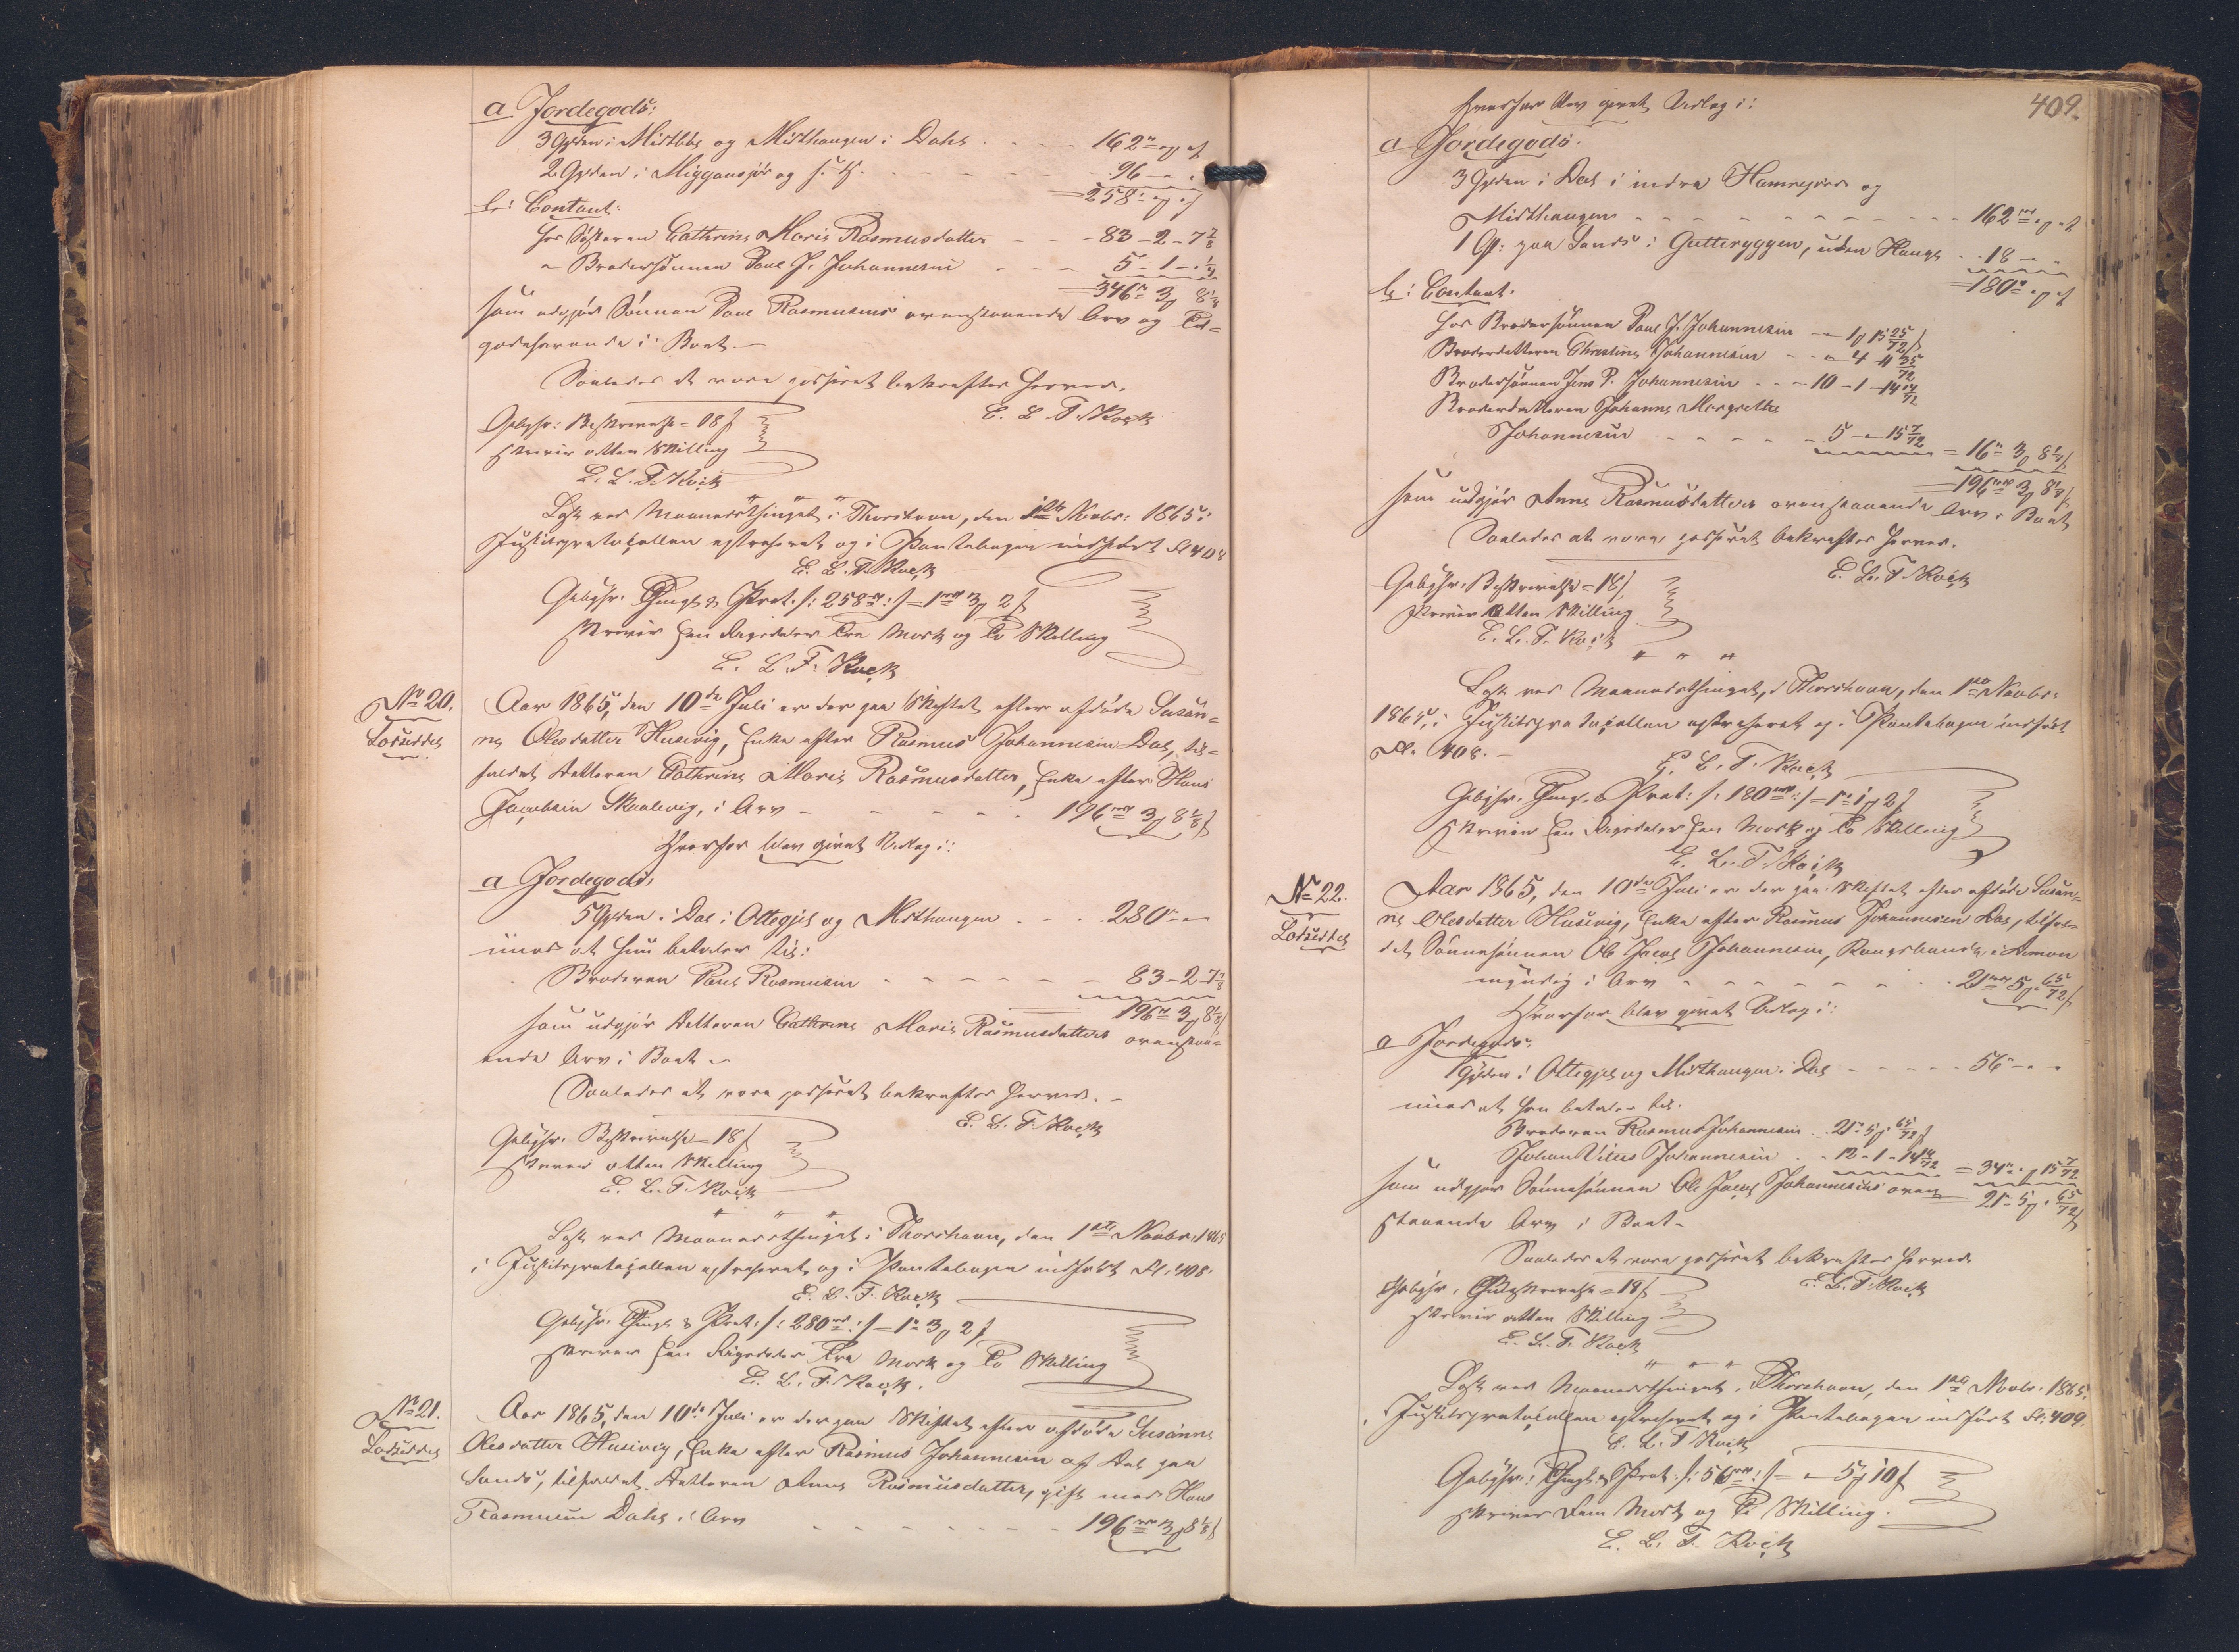 a Jordegods:
3 Gylden i Misthús og Misthaugen i Dahs - - - 162 rd " ℳ " ß
2 Gylden i Miggansjör og f: H. - - - - - - 96 - "
= 258 " " "
b: Contant:
hos Søsteren Cathrine Marie Rasmusdatter - - - 83 - 2 - 7 7/8
" Brodersønnen Poul J. Johannesen - - - 5 - 1 -
= 346 rd 3 ℳ 8 1/8
som udgjør Sønnen Poul Rasmusens ovenstaaende Arv og Til=
godehavende i Boet.
Saaledes at være passeret bekræftes herved.
E. L. T. Kock
Gebyhr: Beskrivelse = 18 ß
skriver atten Skilling
E. L. T. Kock
" " "
Læst ved Maanedsthinget i Thorshavn, den 1ste Novbr: 1865 i
Justitsprotocollen extraheret og i Pantebogen indført Fl 408
E. L. T. Kock
Gebyhr. Thingl. & Prot. /: 258 rd :/ = 1 rd 3 ℳ 2 ß
skriver Een Rigsdaler Tre Mark og To Skilling
E. L. T. Kock
No 20.
Lodseddel
Aar 1865, den 10de Juli er der paa Skiftet efter afdøde Susan=
ne Olesdatter Husevig, Enke efter Rasmus Johannesen Dal, til=
faldet Datteren Cathrine Marie Rasmusdatter, Enke efter Hans
Jacobsen Skaalevig, i Arv - - - - - 196 rd 3 ℳ 8 1/8 ß
Hvorfor blev givet Udlæg i:
a Jordegods:
5 Gylden i Dal i Ottegjel og Misthaugen - - - 280 rd " "
imod at hun betaler til:
Broderen Poul Rasmusen - - - - - - 83 - 2 - 7 7/8
196 rd 3 ℳ 8 1/8 ß
som udgjør Datteren Cathrine Marie Rasmusdatters ovenstaa=
ende Arv i Boet.
Saaledes at være passeret bekræftes herved.
E. L. T. Kock
Gebyhr. Beskrivelse = 18 ß
skriver atten Skilling
E. L. T. Kock
" " "
Læst ved Maanedsthinget i Thorshavn, den 1ste Novbr. 1865
i Justitsprotocollen extraheret, og i Pantebogen indført Fl. 408.
E. L. T. Kock
Gebyhr. Thingl. & Prot. /: 280 rd :/ = 1 rd 3 ℳ 2 ß
skriver Een Rigsdaler Tre Mark og To Skilling
E. L. T. Kock.
No 21.
Lodseddel
Aar 1865, den 10de Juli er der paa Skiftet efter afdøde Susanne
Olesdatter Husevig, Enke efter Rasmus Johannesen af Dal paa
Sandø, tilfaldet Datteren Anne Rasmusdatter, gift med Hans
Rasmusen Dahl i Arv - - - - - - 196 rd 3 ℳ 8 1/8 ß
409.
Hvorfor blev givet Udlæg i:
a Jordegods.
3 Gylden i Dal i indre Hamregjerde og
Misthaugen - - - - - - - - - 162 rd " ℳ " ß
1 Gl: paa Sandø i Gutteryggen, uden Hauge - - 18 - "
= 180 rd " ℳ " ß
b: Contant.
hos Brodersønnen Poul J. Johannesen - " - 1 ℳ 15 25/72 ß
Broderdatteren Christine Johannesen - - " - 4 - 11 35/72
Brodersønnen Jens P. Johannesen - - - 10 - 1 - 14 14/72
Broderdatteren Johanne Margrethe
Johannesen - - - - - 5 - " - 15 7/72 = 16 rd 3 ℳ 8 1/8 ß
= 196 rd 3 ℳ 8 1/8 ß
som udgjør Anne Rasmusdatters ovenstaaende Arv i Boet
Saaledes at være passeret bekræftes herved.
E. L. T. Kock
Gebyhr. Beskrivelse = 18 ß
skriver Atten Skilling
E. L. T. Kock
" " "
Læst ved Maanedsthinget, i Thorshavn, den 1ste Novbr:
1865, i Justitsprotocollen extraheret og i Pantebogen indført
Fl. 408. -
E. L. T. Kock
Gebyhr. Thingl. & Prot: /: 180 rd :/ = 1 rd 1 ℳ 2 ß
skriver Een Rigsdaler Een Mark og To Skilling
E. L. T. Kock
No 22.
Lodseddel
Aar 1865, den 10de Juli er der paa Skiftet efter afdøde Susan=
ne Olesdatter Husevig, Enke efter Rasmus Johannesen Dal, tilfal=
det Sønnesønnen Ole Jacob Johannesen, Kongsbonde i Dimon
myndig i Arv - - - - - - - 21 rd 5 ℳ " 65/72 ß
Hvorfor blev givet Udlæg i:
a Jordegods.
1 Gylden i Ottegjel og Misthaugen i Dal - - - - - 56 - " "
imod at han betaler til:
Broderen Rasmus Johannesen - 21 rd 5 ℳ " 65/72 ß
Johan Vilus Johannesen - - 12 - 1 - 14 14/72 = 34 rd " ℳ 15 7/72
= 21 - 5 ℳ " 65/72 ß
som udgjør Sønnesønnen Ole Jacob Johannesens oven=
staaende Arv i Boet -
Saaledes at være passeret bekræftes herved.
E. L. T. Kock
Gebyhr. Beskrivelse = 18 ß
skriver atten Skilling
E. L. T. Kock
" " "
Læst ved Maanedsthinget i Thorshavn, den 1ste Novbr. 1865.
i Justitsprotocollen extraheret og i Pantebogen indført Fl. 409.
E. L. T. Kock
Gebyhr. Thingl. & Prot. /: 56 rd :/ = " 5 ℳ 10 ß
skriver Fem Mark og Ti Skilling.
E. L. T. Kock